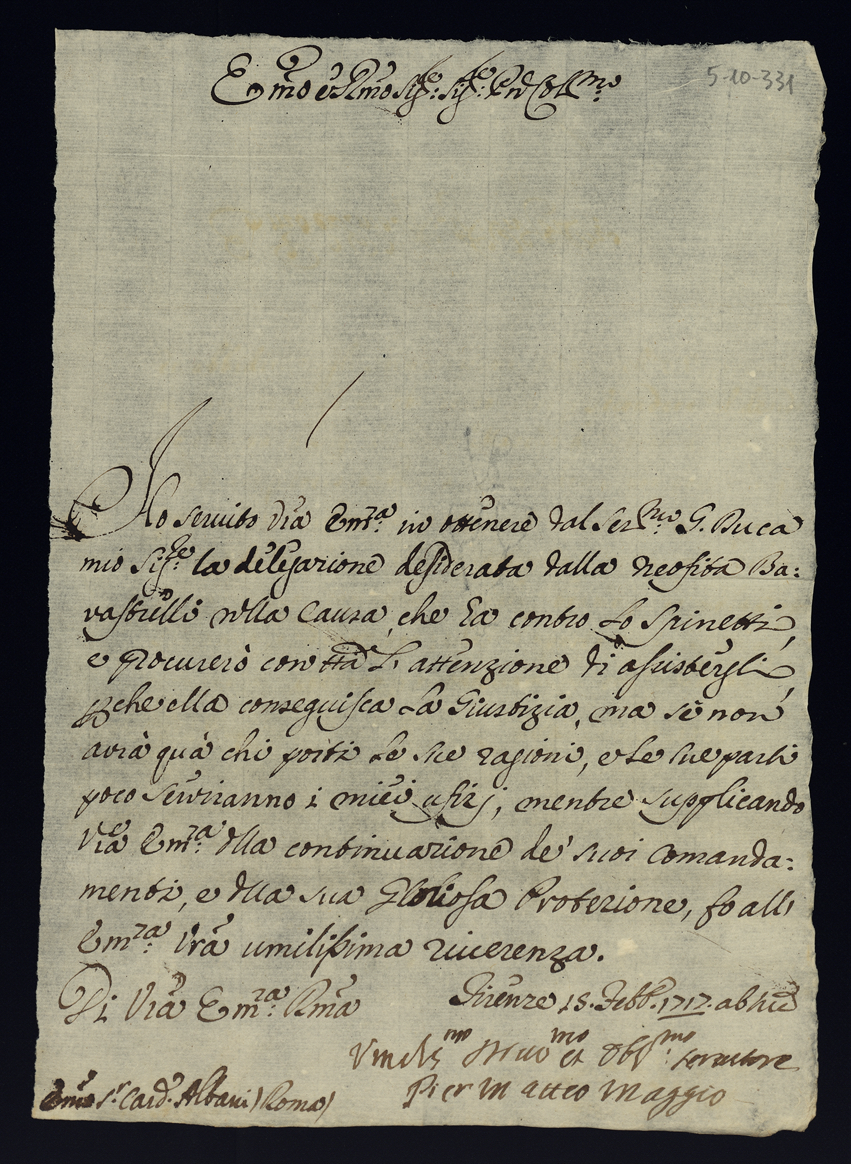 5-10-331
Em̃o e Rm̃o Sig:re Sig:re Pñe Col:mo
Ho seruito Vr̃a Em:za in ottenere dal Ser:mo G. Duca
mio Sig:re la delegazione desiderata dalla neofita Ba:
uastrelli nella causa, che hà contro lo Spinetti,
e procurerò con tta L' attenzione di assistergli,
pche ella conseguisca La Giustizia, ma se non
aurà quà chi porti Le sue ragioni, e Le sue parti
poco seruiranno i miei ufizj, mentre supplicando
Vr̃a Em:za dlla continuazione de' suoi comanda:
menti, e dlla sua Gloriosa Protezione, fo all'
Em:za Vr̃a umilissima riuerenza.
Di Vr̃a Em:za Rm̃a
Firenze 15. Febb. 1717. ab Inc
Vmilis:mo Deuo:mo et Obl:mo Seruitore
Pier Matteo Maggio
Em̃o S.r Card. Albani) Roma)